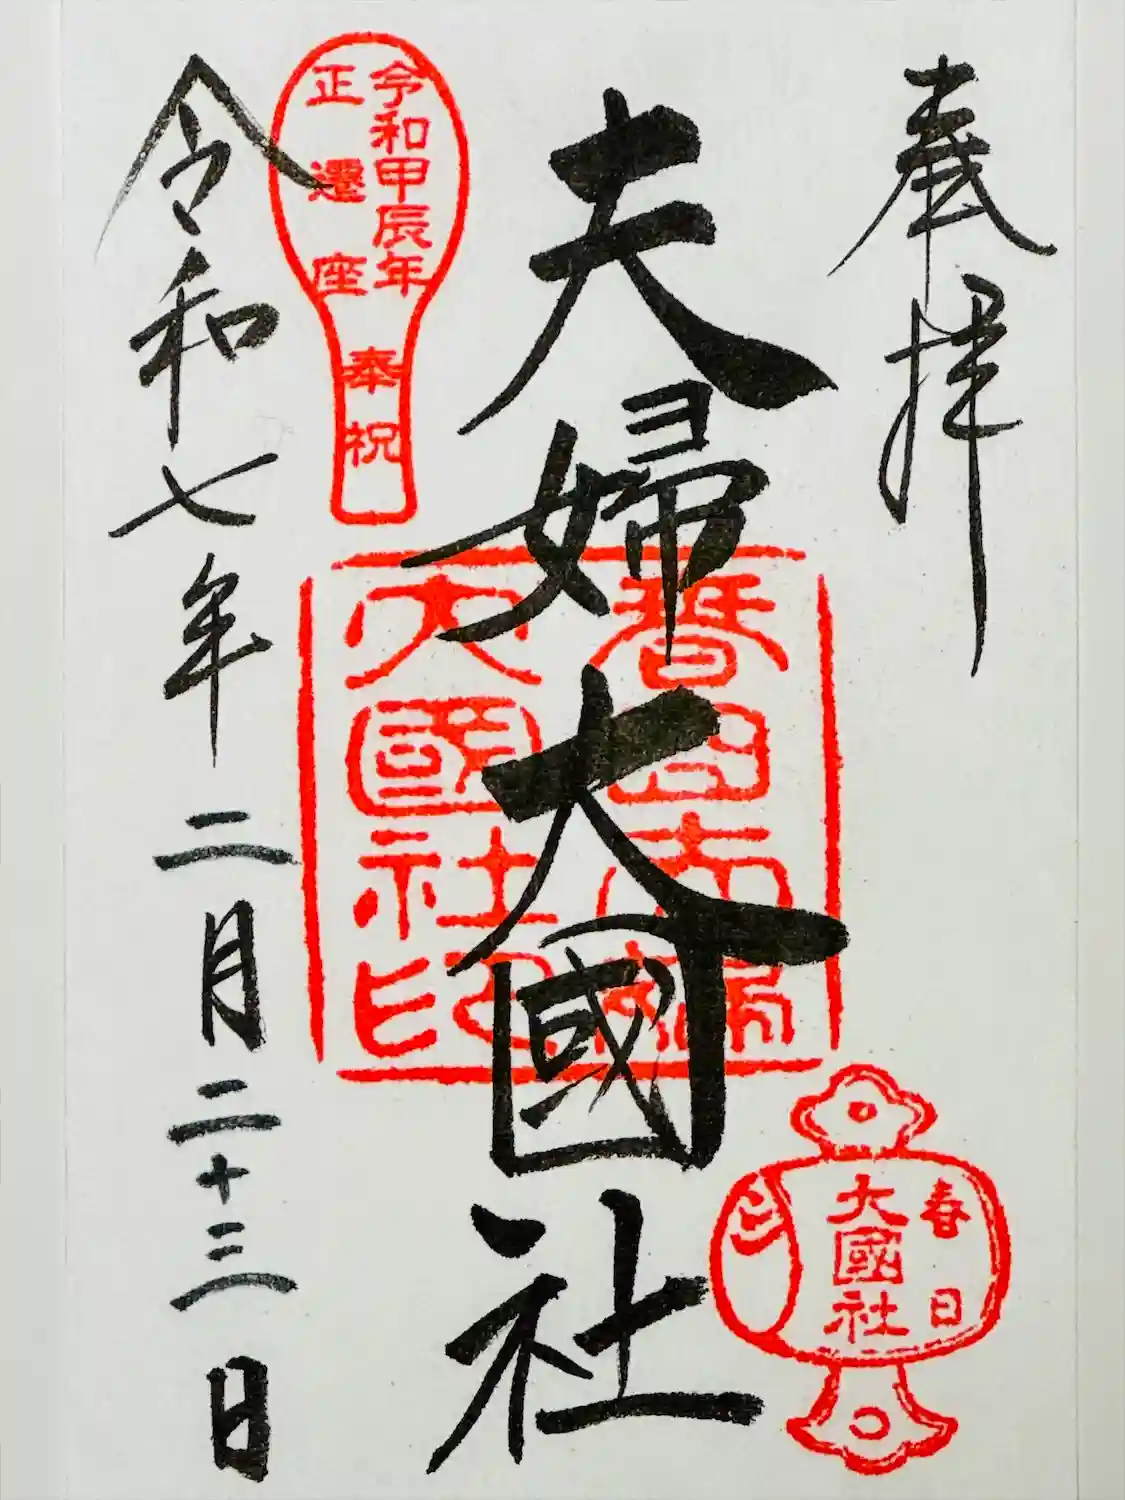 奉拝
春日
大國社
夫婦大國社
春日夫婦
大國社印
令和甲辰年
正遷座
奉祝
令和七年二月二十三日